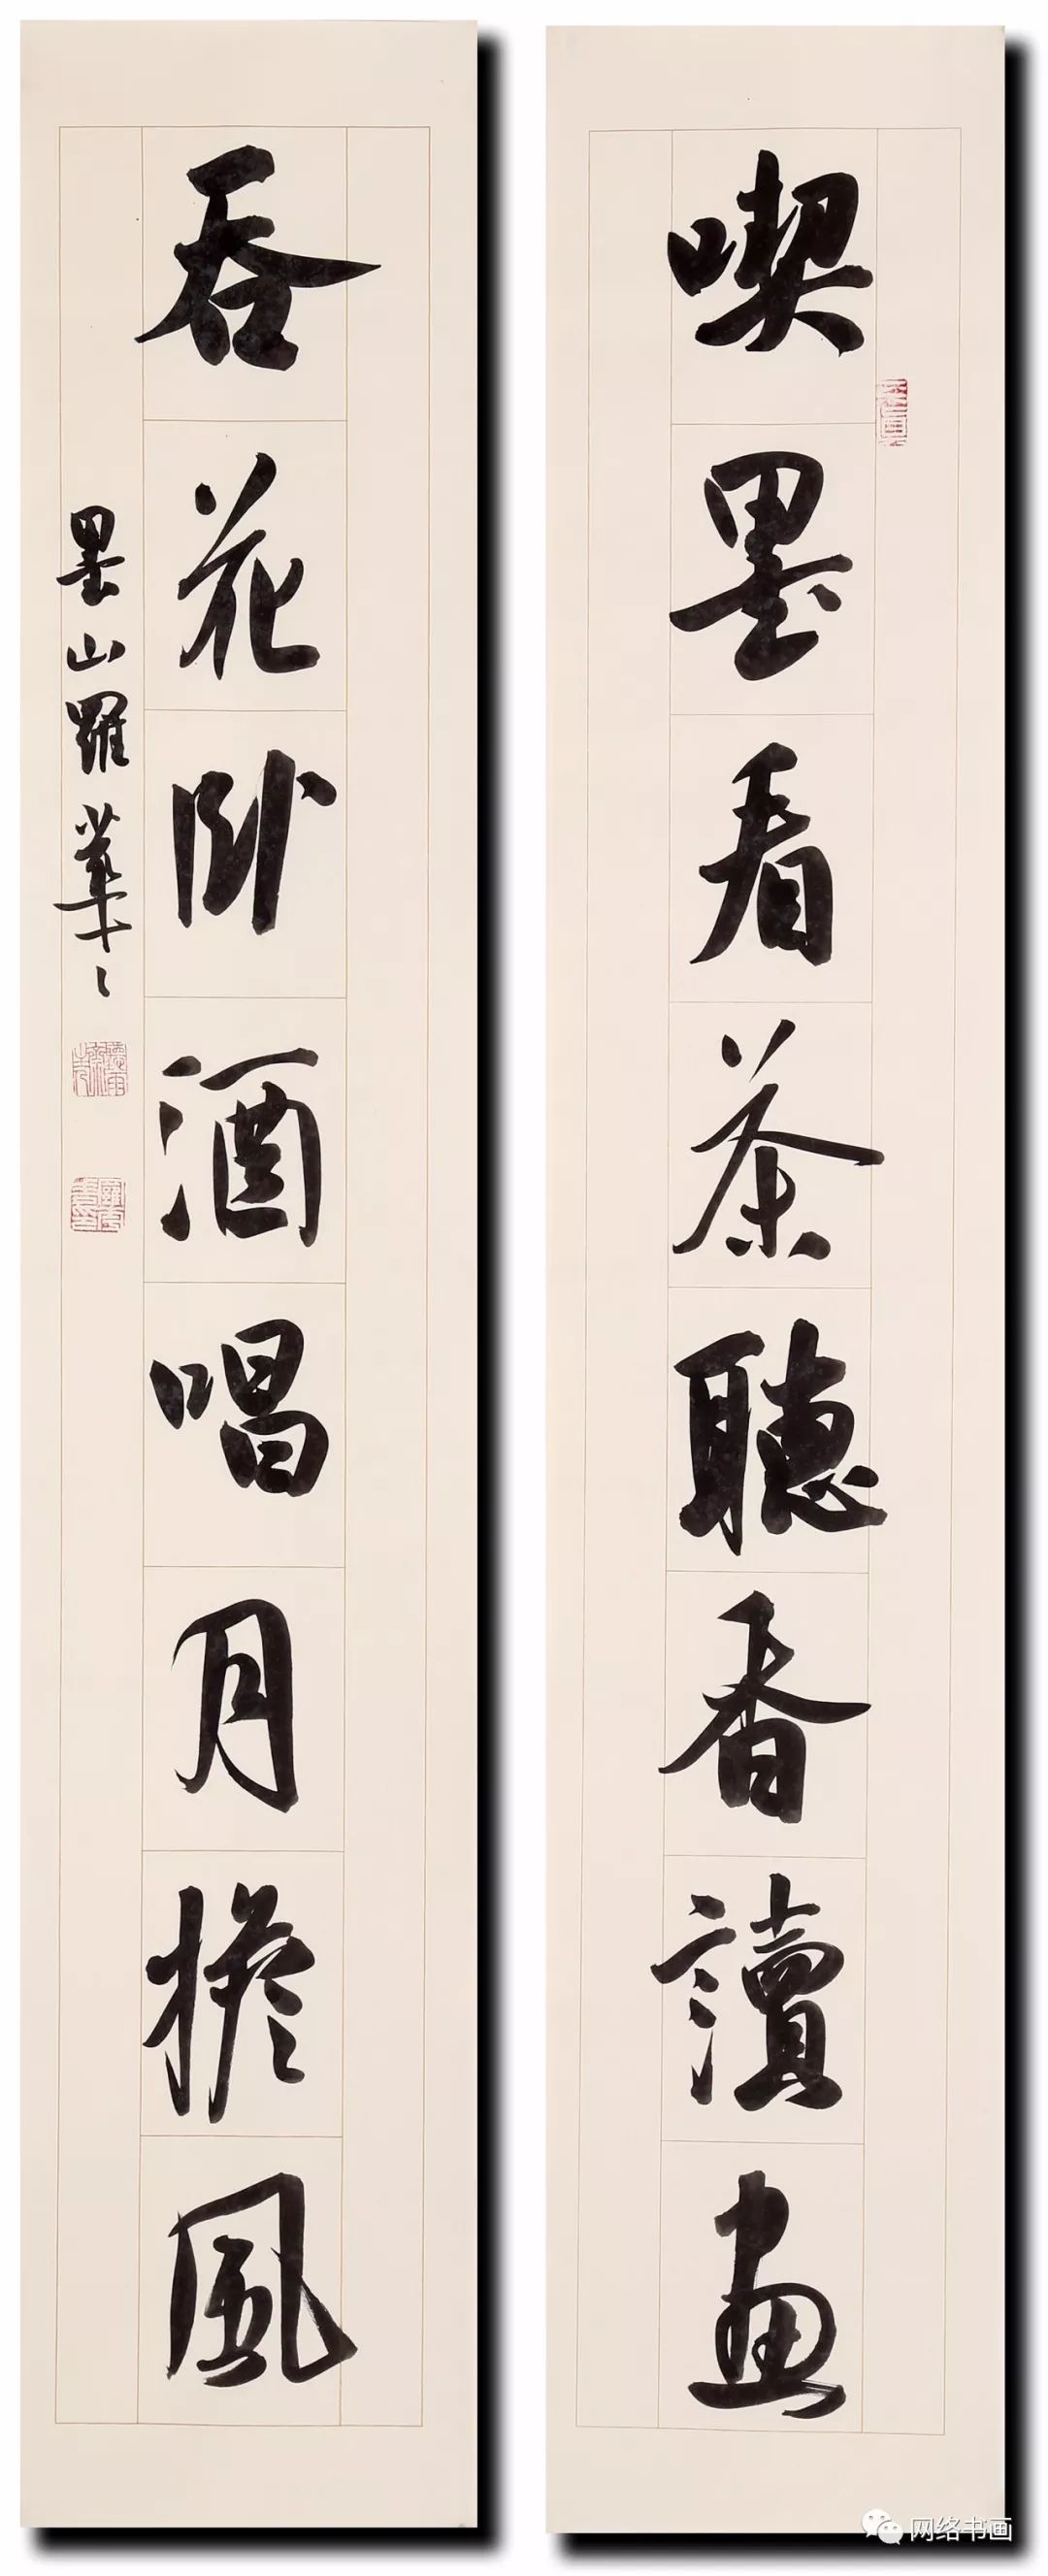 喫墨看茶聽香讀畫
吞花卧酒唱月擔風
墨山羅華
网络书画